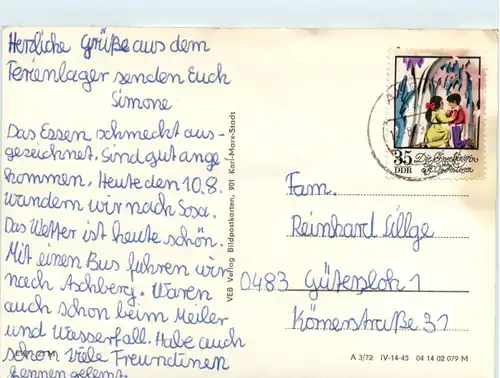 Herzliche Grüße aus dem
Ferienlager senden Euch
Simone
Das Essen schmeckt aus-
gezeichnet. Sind gut ange-
kommen. Heute den 10.8.
wandern wir nach Sosa.
Das Wetter ist heute schön.
Mit einen Bus fuhren wir
nach Aschberg. Waren
auch schon beim Meiler
und Wasserfall. Habe auch
schon viele Freundinnen
kennen gelernt.
VEB Verlag Bildpostkarten, 901 Karl-Marx-Stadt
35
DDR
Die
Fam.
Reinhard Sillge
0483 Gütersloh 1
Körnerstraße 31
A 3/72 IV-14-45 04 14 02 079 M